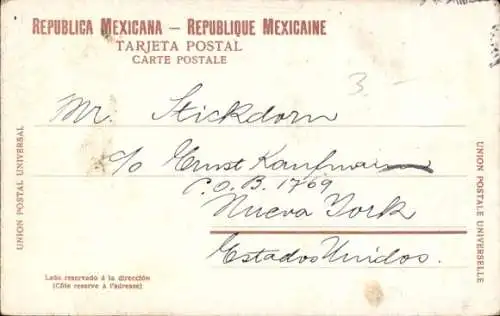 REPUBLICA MEXICANA — REPUBLIQUE MEXICAINE
TARJETA POSTAL
CARTE POSTALE
3.-
Mr. Stickdorn
c/o Ernst Kaufmann
P.O.B. 1769
Nueva York
Estados Unidos.
UNION POSTAL UNIVERSAL
UNION POSTALE UNIVERSELLE
Lado reservado á la dirección
(Côte reserve à l'adresse)